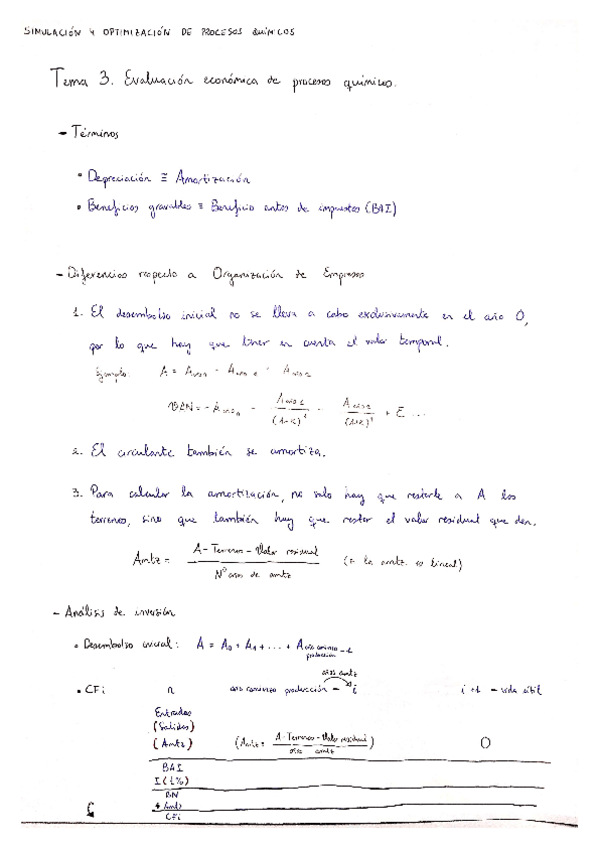 SIMULACIÓN Y OPTIMIZACIÓN DE PROCESOS QUÍMICOS
Tema 3. Evaluación económica de procesos químicos.
- Términos
• Depreciación ≡ Amortización
• Beneficios gravables ≡ Beneficio antes de impuestos (BAI)
- Diferencias respecto a Organización de Empresas
1. El desembolso inicial no se lleva a cabo exclusivamente en el año 0,
por lo que hay que tener en cuenta el valor temporal.
Ejemplo: A =
VAN = -
2. El circulante también se amortiza.
3. Para calcular la amortización, no solo hay que restarle a A los
terrenos, sino que también hay que restar el valor residual que den.
Amtz = A - Terrenos - Valor residual / Nº años de amtz (≡ la amtz. es lineal)
- Análisis de inversión
• Desembolso inicial: A = A0 + A1 + ... + A año comienzo producción - 1
años amtz
• CFi n año comienzo producción → i i+1 - vida útil
Entradas
(Salidas)
(Amtz) (Amtz = A - Terrenos - Valor residual / años amtz) 0
BAI
I (t%)
BN
+ Amtz
CFi